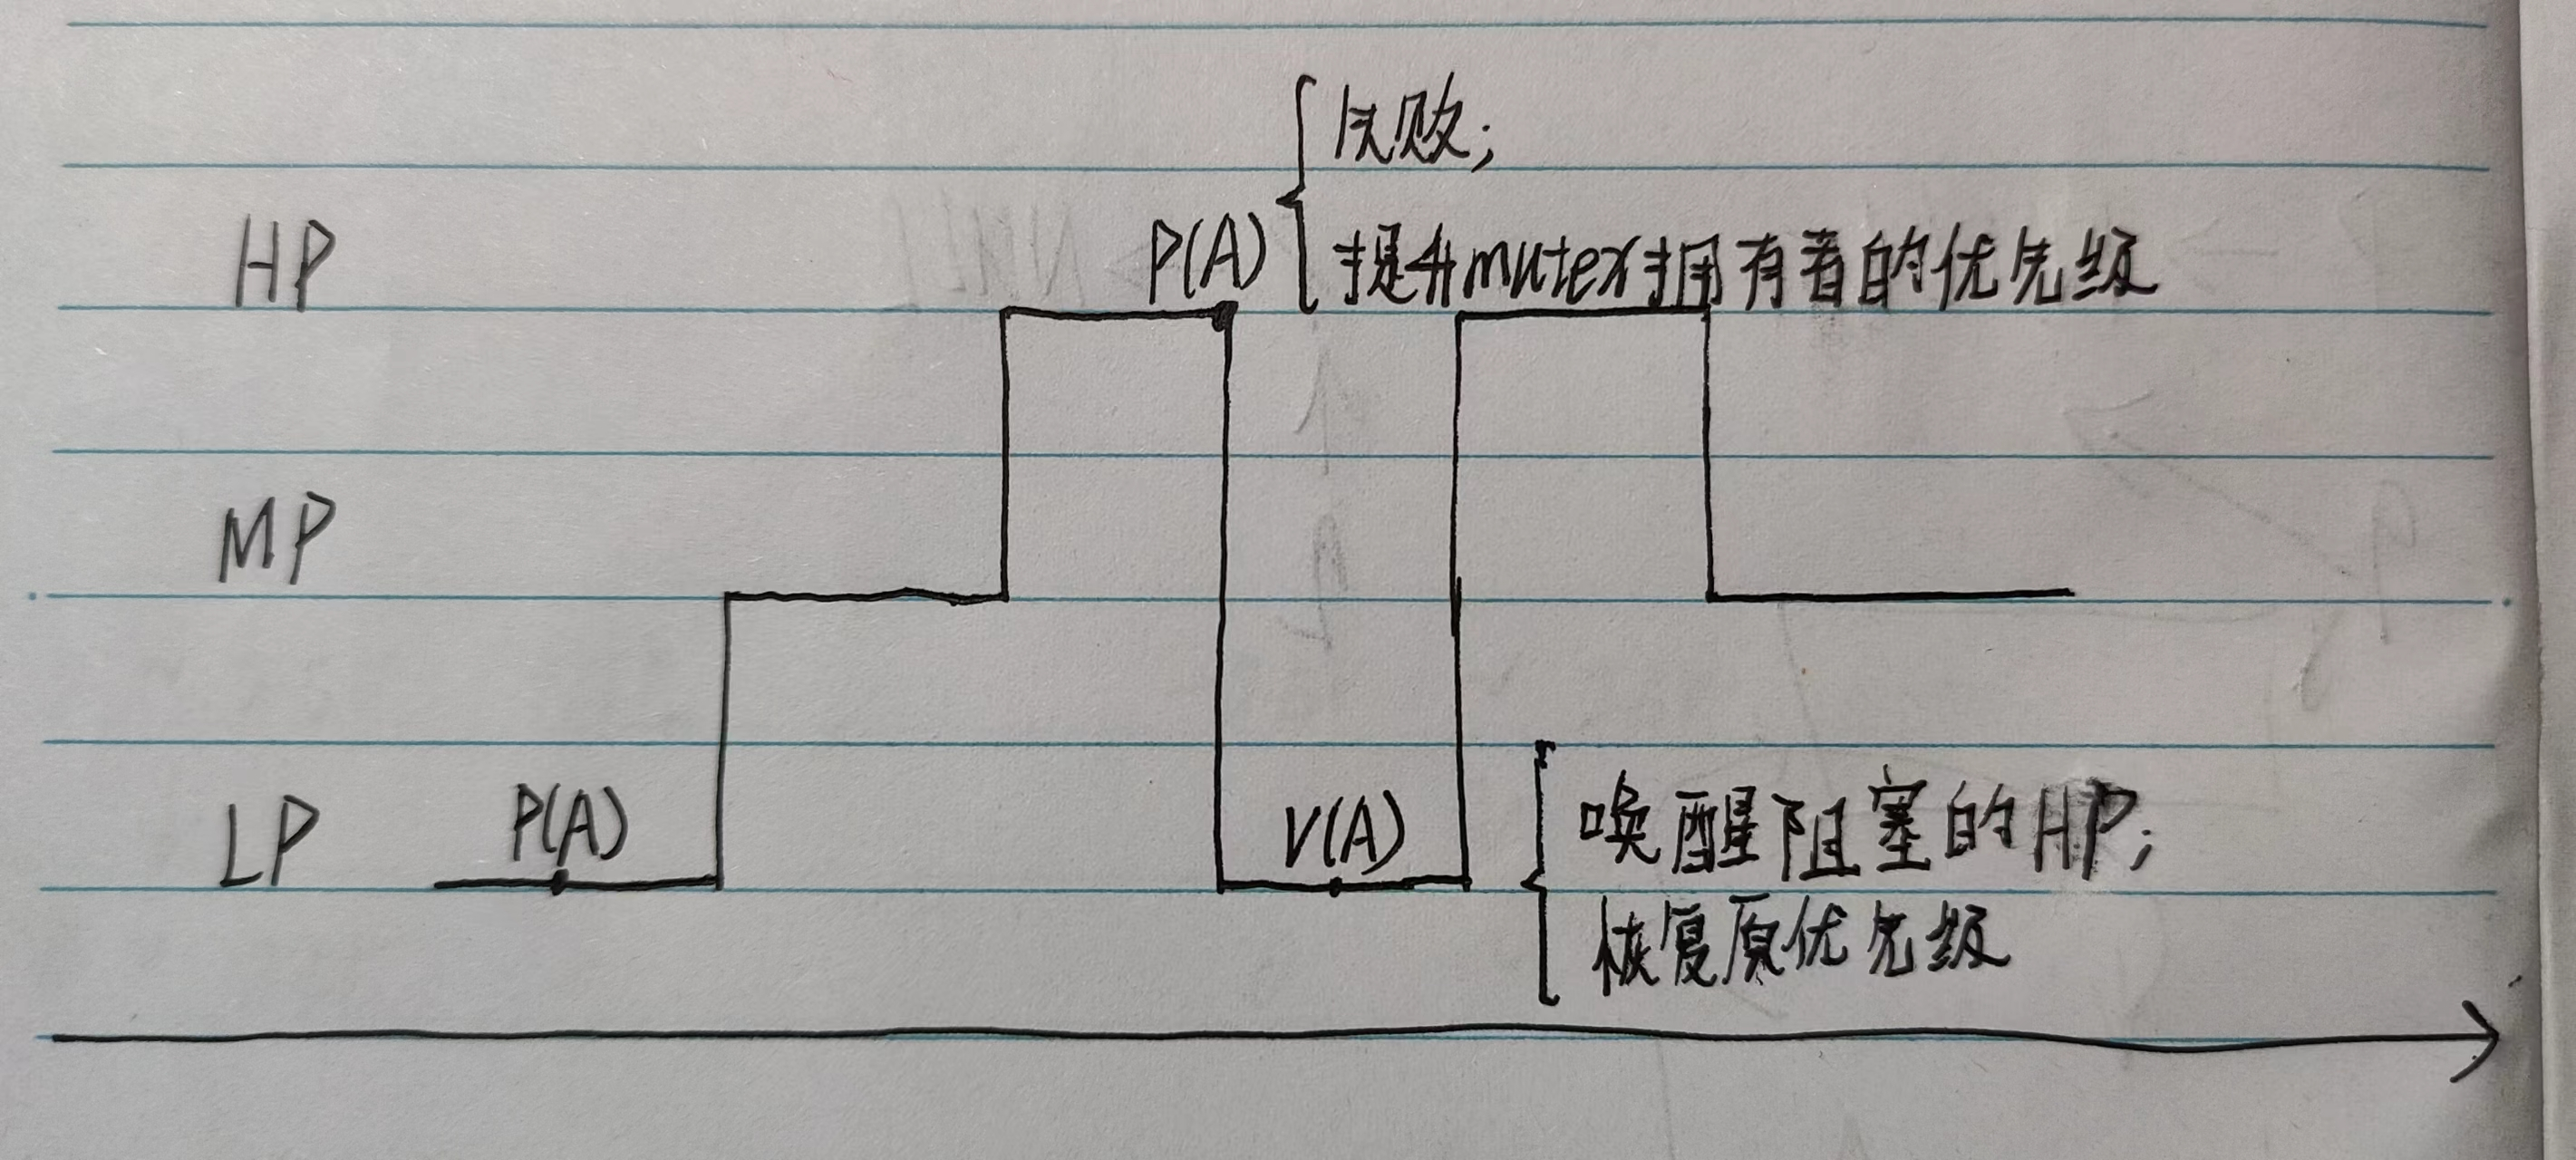 失败;
HP P(A) 提升mutex拥有者的优先级
MP
LP P(A) V(A) 唤醒阻塞的HP;
恢复原优先级